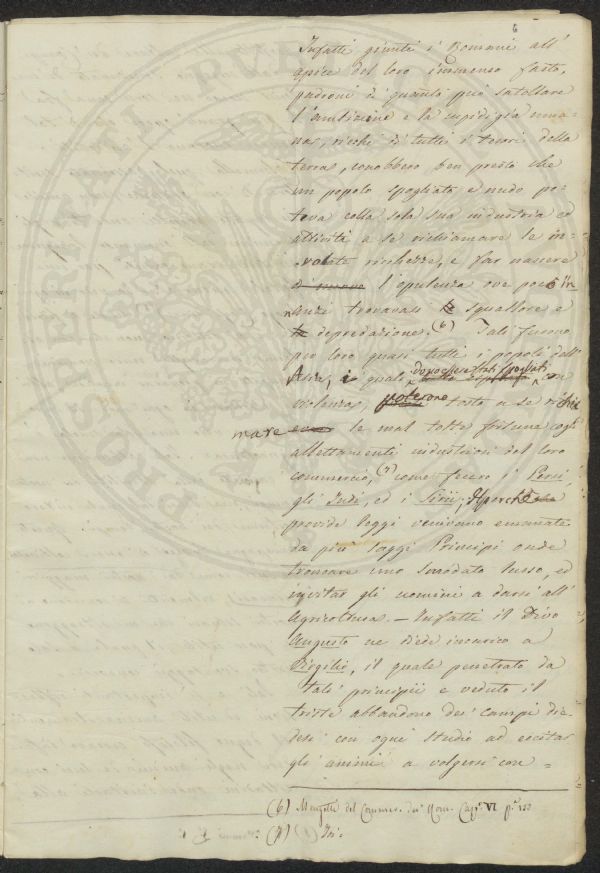 6
Infatti giunti i Romani all'
apice del loro immenso fasto,
padroni di quanto può satollare
l'ambizione e la cupidigia uma=
na, ricchi di tutti i tesori della
terra, conobbero ben presto che
un popolo spogliato e nudo po=
teva colla sola sua industria ed
attività a se richiamare le in=
volate ricchezze, e far nascere
di nuovo l'opulenza ove poco in=
nanzi trovavasi squallore e
depredazione. (6) Tali furono
per loro quasi tutti i popoli dell'
Asia, i quali dopo che erano stati spogliati con
violenza, poterono tosto a se richia=
mare le mal tolte fortune cogli
allettamenti industriosi del loro
commercio, (7) come fecero i Persi,
gli Indi, ed i Sirii;
provide leggi venivano emanate
da più saggi Principi onde
troncare uno smodato lusso, ed
invitar gli uomini a darsi all'
Agricoltura. — Infatti il Divo
Augusto ne diede incarico a
Virgilio, il quale penetrato da
tali principii e veduto il
triste abbandono dei campi die=
desi con ogni studio ad eccitar
gli animi a volgersi con=
(6) Mengotti del Commer. dei Rom. Cap. VI p.
(7) Ivi.
PROSPERITATI PUBLICAE